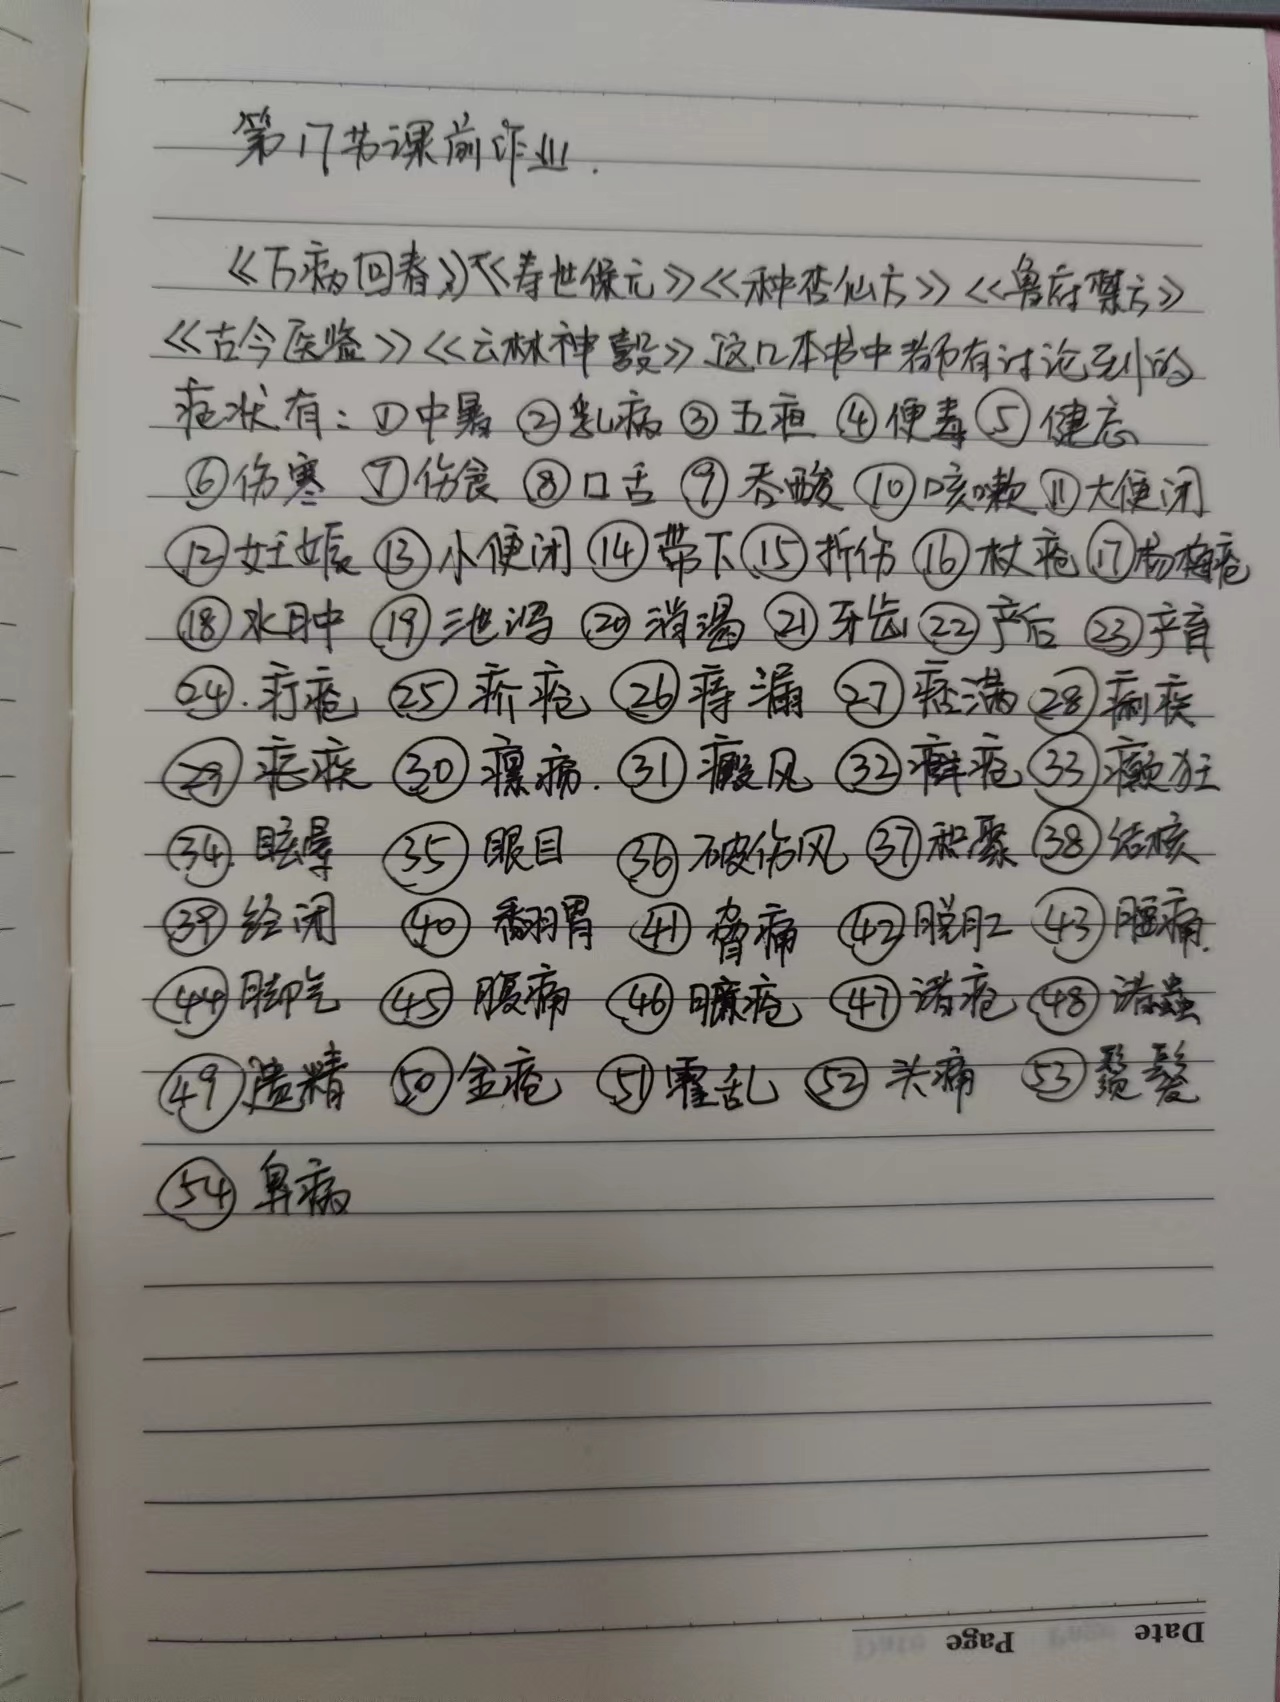 第17节课前作业.
《万病回春》《寿世保元》《种杏仙方》《鲁府禁方》
《古今医鉴》《云林神彀》这几本书中都有讨论到的
症状有：①中暑 ②乳病 ③五疸 ④便毒 ⑤健忘
⑥伤寒 ⑦伤食 ⑧口舌 ⑨吞酸 ⑩咳嗽 ⑪大便闭
⑫妊娠 ⑬小便闭 ⑭带下 ⑮折伤 ⑯杖疮 ⑰杨梅疮
⑱水肿 ⑲泄泻 ⑳消渴 ㉑牙齿 ㉒产后 ㉓产育
㉔.疔疮 ㉕疥疮 ㉖痔漏 ㉗痞满 ㉘痢疾
㉙疟疾 ㉚瘰疬. ㉛癜风 ㉜癣疮 ㉝癫狂
㉞.眩晕 ㉟眼目 ㊱破伤风 ㊲积聚 ㊳结核
㊴经闭 ㊵翻胃 ㊶胁痛 ㊷脱肛 ㊸腰痛.
㊹脚气 ㊺腹痛 ㊻臁疮 ㊼诸疮 ㊽诸蟲
㊾遗精 ㊿金疮 51霍乱 52头痛 53鬚髮
54鼻病
Date
Page